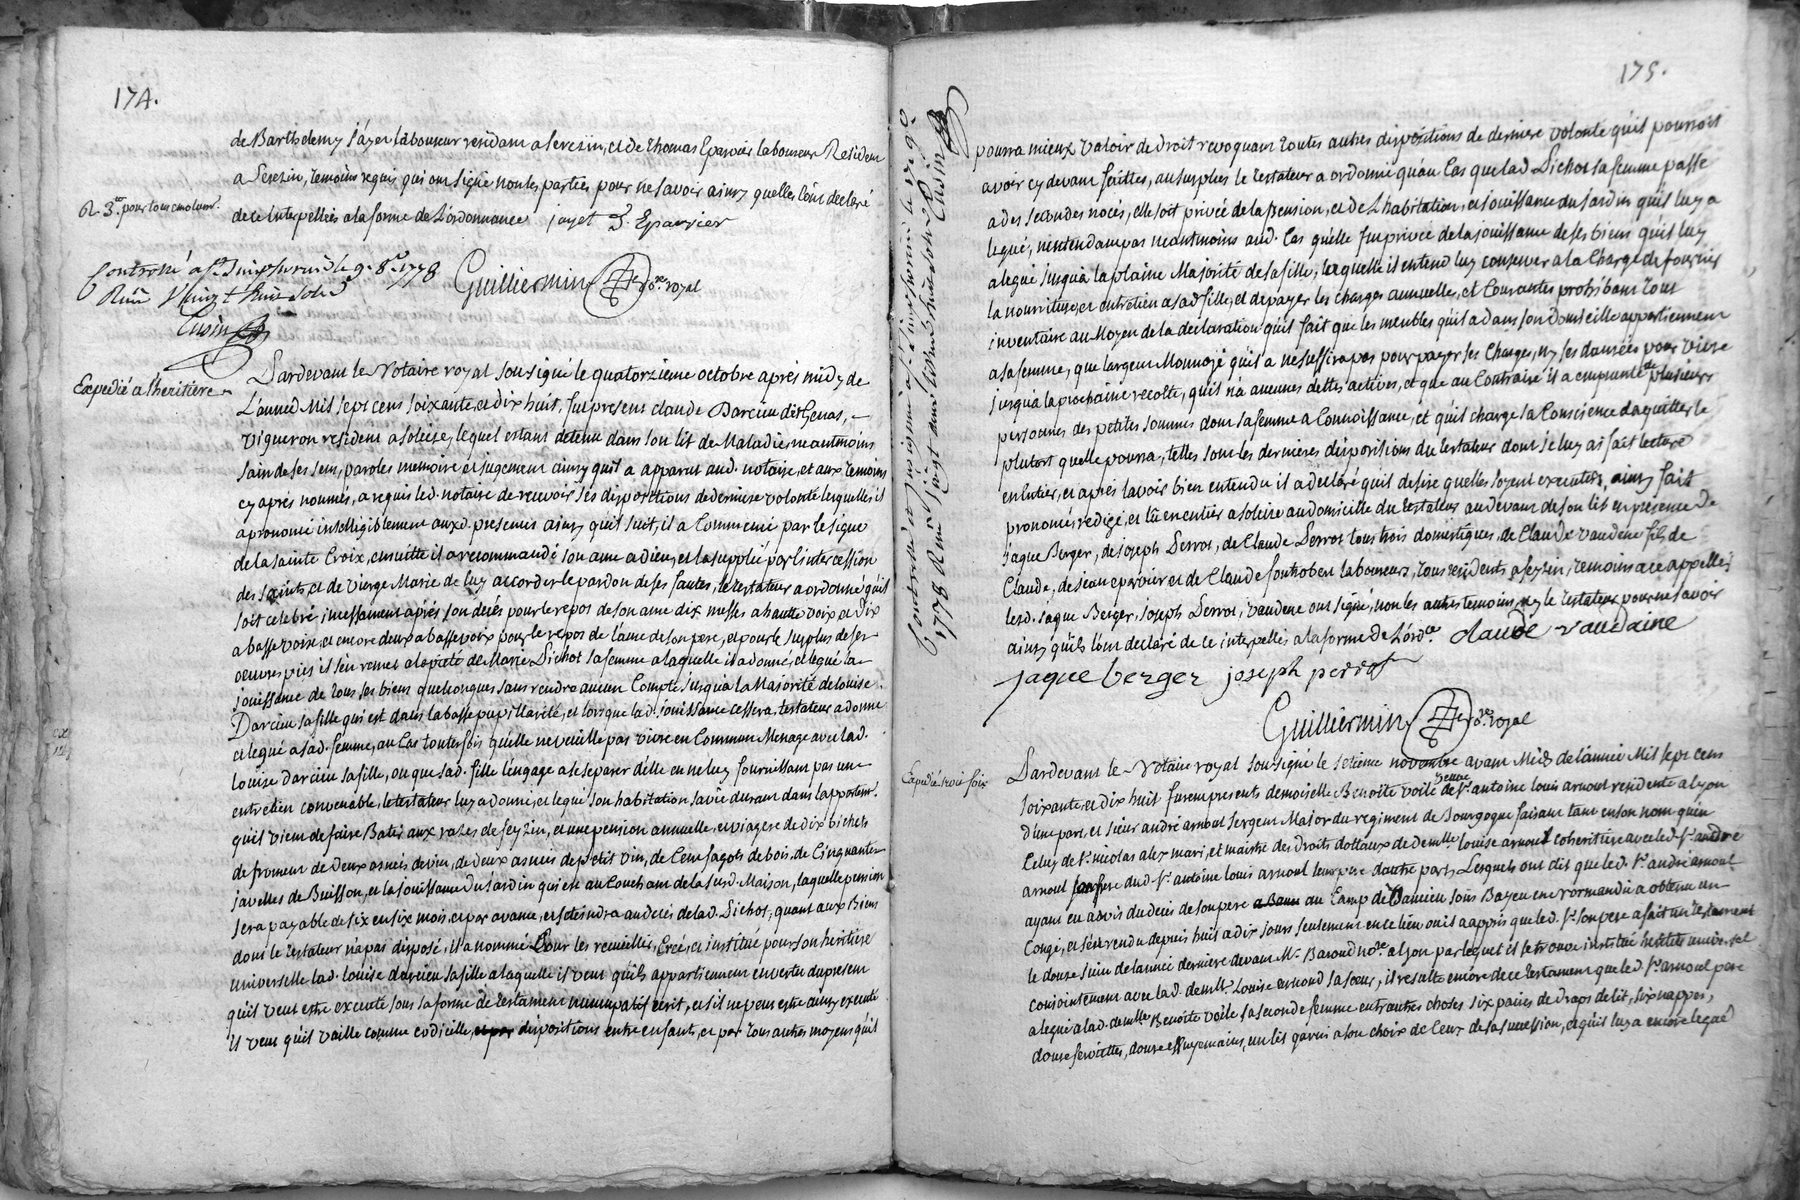 174.
de Barthelemy jayet laboureur residant a serezin, et de thomas Eparvier laboureur Resident
a Serezin, temoins requis, qui ont signé non les parties pour ne savoir ainsy quelles l'ont declaré
de ce Interpellées a la forme de L'ordonnance jayet T. Eparvier
R. 3tt pour tous emolum.
Controllé a St Simphorien le 9. 8re 1778
Reçu Vingt huit sols
Cusin
Guilliermin no.re royal
Expedié a l'heritiere
Pardevant le Notaire royal soussigné le quatorzieme octobre après midy de
L'année Mil sept cens soixante et dix huit, fut present claude Darcieu dit Genas,
vigneron resident a solèize, lequel estant detenu dans son lit de Maladie, neantmoins
sain de ses sens, paroles memoire et jugement ainsy quil a apparut aud. notaire, et aux temoins
cy après nommés, a requis led. notaire de recevoir ses dispositions de derniere volonté lesquelles il
a prononcé intelligiblement auxd. presents ainsy qu'il suit, il a Commencé par le signe
de la sainte Croix, ensuitte il a recommandé son ame a dieu, et la supplié par l'intercession
des saints, et de vierge Marie de luy accorder le pardon de ses fautes, le testateur a ordonné qu'il
soit celebré incessament après son decès pour le repos de son ame dix messes a haute voix et dix
a basse voix, et encore deux a basse voix pour le repos de l'ame de son pere, et pour le surplus de ses
oeuvres pies il s'en remet a la pieté de Marie Pichot sa femme a laquelle il a donné, et legué la
jouissance de tous ses biens quelconques sans rendre aucun Compte jusqu'a la Majorité de louise
Darcieu sa fille qui est dans la basse pupillarité, et lorsque lad. jouissance cessera, testateur a donné
et legué a sad. femme, au Cas toutesfois qu'elle ne veuille pas vivre en Commun Menage avec lad.
Louise Darcieu sa fille, ou que sad. fille l'engage a se separer d'elle en ne luy fournissant pas un
entretien convenable, le testateur luy a donné, et legué son habitation sa vie durant dans l'appartem.
qu'il vient de faire Batir aux razes de seyzin, et une pension annuelle, et viagere de dix bichets
de froment de deux asnées de vin, de deux asnées de petit vin, de Cent fagots de bois, de Cinquante
javelles de Buisson, et la jouissance du jardin qui est au Couchant de la susd. Maison, laquelle pension
sera payable de six en six mois, et par avance, et s'eteindra au decès de lad. Pichot, quant aux Biens
dont le testateur n'a pas disposé, il a nommé Pour les recueillir, Créé, et institué pour son heritiere
universelle lad. louise darcieu sa fille a laquelle il veut qu'ils appartiennent en vertu du present
qu'il veut estre executé sous la forme de testament nuncupatif écrit, et s'il ne peut estre ainsy executé
il veut qu'il vaille comme codicille, dispositions entre enfants, et par tous autres moyens qu'il
Controllé et insinué a St Simphorien le 17 9re
1778 Reçu
Cusin
175.
pourra mieux valoir de droit revoquant toutes autres dispositions de derniere volonté qu'il pourroit
avoir cy devant faittes, au surplus le testateur a ordonné qu'au Cas que lad. Pichot sa femme passe
a des secondes noces, elle soit privée de la pension, et de L'habitation, et jouissance du jardin qu'il luy a
legué, n'entendant pas neantmoins aud. Cas qu'elle fut privée de la jouissance de ses biens qu'il luy
a legué jusqu'a la plaine Majorité de sa fille, lesquelle il entend luy conserver a la Charge de fournir
la nourriture, et entretien a sad. fille, et de payer les charges annuelles, et Courantes prohibant tout
inventaire au Moyen de la declaration qu'il fait que les meubles qu'il a dans son domicille appartiennent
a sa femme, que largent Monnoyé qu'il a ne suffira pas pour payer ses Charges, ny ses danrées pour vivre
jusqu'a la prochaine recolte, qu'il n'a aucunes dettes actives, et que au Contraire il a emprunté de plusieurs
personnes des petites sommes dont sa femme a Connoissance, et qu'il charge sa Conscience d'aquitter le
plutost quelle pourra, telles sont les dernieres dispositions du testateur dont je luy ai fait lecture
en entier, et après l'avoir bien entendu il a declaré qu'il desire quelles soyent executées, ainsy fait
prononcé, redigé, et lû en entier a soleize au domicille du testateur au devant de son lit en presence de
jaque Berger, de joseph Perrot, de Claude Perrot tous trois domestiques, de Claude vaudene fils de
Claude, de jean eparvier et de Claude laboureurs, tous residents a seyzin, temoins a ce appellés
lesd. jaque Berger, joseph Perrot, vaudene ont signé, non les autres temoins, ny le testateur pour ne savoir
ainsy qu'ils l'ont declaré de ce interpellés a la forme de L'ord.ce claude vaudaine
jaque berger joseph perrot
Guilliermin no.re royal
Expedié trois fois
Pardevant le Notaire royal soussigné le setieme novembre avant Midy de l'année Mil sept cens
soixante, et dix huit furent presents demoiselle Benoîte voile veuve de Sr antoine louis arnoul residente a lyon
d'une part, et sieur andré arnoul sergent Major du regiment de Bourgogne faisant tant en son nom qu'en
Celuy de Sr nicolas alex mari, et maistre des Droits dottaux de demelle louise arnoul coheritiere avec led. Sr andré
arnoul frere dud. Sr antoine louis arnoul leur pere d'autre part, Lesquels ont dit que led. Sr andré arnoul
ayant eu advis du decès de son pere au Camp de sous Bayeu en normandie a obtenu un
Congé, et s'est rendu depuis huit a dix jours seulement en ce lieu ou il a appris que led. Sr son pere a fait un testament
le douze juin de l'année derniere devant Me Baroud nore a lyon par lequel il se trouve institué heritier universel
conjointement avec lad. demlle Louise arnoud sa soeur, il resulte encore de ce testament que led. Sr arnoul pere
a legué a lad. demelle Benoîte voile sa seconde femme entr'autres choses six paires de draps de lit, six nappes,
douze serviettes, douze essuyemains, un lit garni a son choix de Ceux de sa succession, et qu'il luy a encore legué